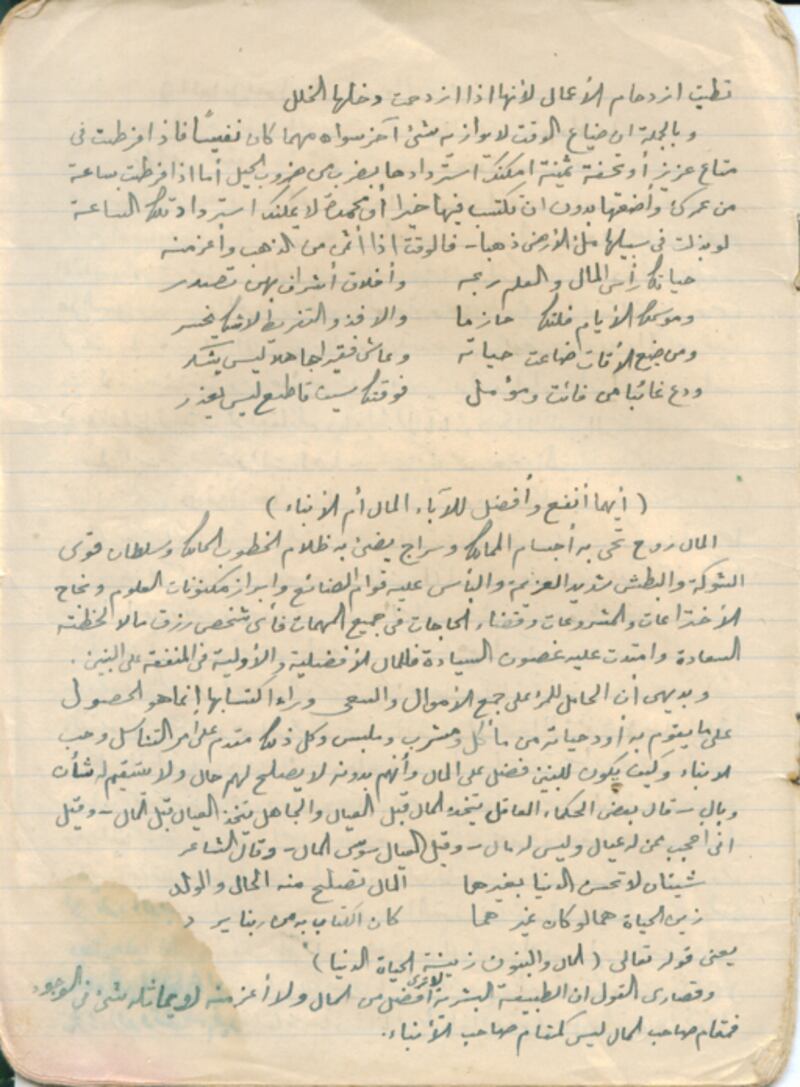 ازدحام الأعمال لأنها اذا ازدحمت دخلها الخلل
وبالجملة ان ضياع الوقت لا يوازيه شئ آخر سواه مهما كان نفيسًا فاذا فرطت فى
متاع عزيز أو تحفة ثمينة امكنك استردادها بضرب من ضروب الحيل أما اذا فرطت بساعة
من عمرك وأضعتها بدون ان تكتسب فيها خيرا أو محمدة لا يمكنك استرداد تلك الساعة
لو بذلت فى سبيلها ملئ الأرض ذهبا - فالوقت اذا أثمن من الذهب وأعز منه
حياتك رأس المال والعلم ربحه وأخلاق أشراف بهن تصدر
وموسمك الأيام فلتك حازما والا فذو التفريط لا شك يخسر
ومن ضيع الأقات ضاعت حياته وعاش فقيرا جاهلا ليس يشكر
ودع غائبا من فائت ومؤمل فوقتك سيف قاطع ليس يعذر
( أيهما أنفع وأفضل للآباء المال أم الأبناء )
المال روح تحى به أجسام الممالك وسراج يضئ به ظلام الخطوب الحالك وسلطان قوى
الشوكة والبطش شديد العزيمة والبأس عليه قوام الصنائع وابراز مكنونات العلوم ونجاح
الأختراعات والمشروعات وقضاء الحاجات فى جميع المهمات فأى شخص رزق مالا لحظته
السعادة وامتدت عليه غصون السيادة فللمال الأفضلية والأولية فى المنفعة على البنين .
وبديهى أن الحامل للمرء على جمع الأموال والسعى وراء اكتسابها إنما هو الحصول
على ما يقوم به أود حياته من مأكل ومشرب وملبس وكل ذلك مقدم على أمر التناسل وحب
الابناء وكيف يكون للبنين فضل على المال وأنهم بدونه لا يصلح لهم حال ولا يستقيم له شأن
وبال - قال بعض الحكماء العاقل يتخذ المال قبل العيال والجاهل يتخذ العيال قبل المال - وقيل
انى أعجب ممن له عيال وليس له مال - وقيل العيال سوس المال - وقال الشاعر
شيئان لا تحسن الدنيا بغيرهما المال تصلح منه الحال والولد
زين الحياة هما لو كان غيرهما كان الكتاب به من ربنا يرد
يعنى قوله تعالى ( المال والبنون زينة الحياة الدنيا )
وقصارى القول ان الطبيعة البشرية لا ترى أفضل من المال ولا أعز منه لا يماثله شئ فى الوجود
فمقام صاحب المال ليس كمقام صاحب الأبناء .